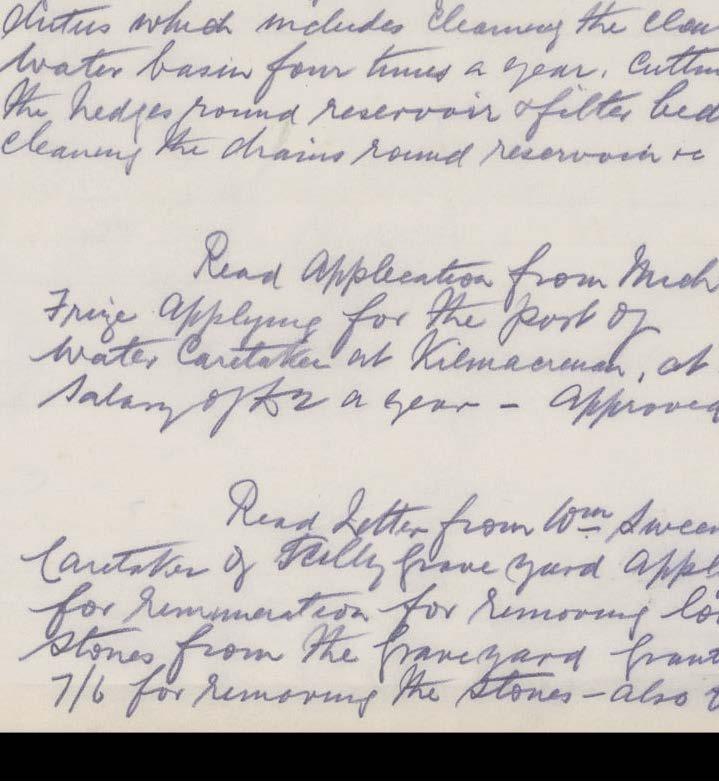 duties which includes cleaning the clear
water basin four times a year, cutting
the hedges round reservoir & filter bed
cleaning the drains round reservoir &c
Read Application from Mich
Frize Applying for the post of
Water Caretaker at Kilmacrenan, at
Salary of £2 a year - Approved
Read Letter from Wm Sween
Caretaker of Tully Grave yard Appl
for remuneration for removing lo
stones from the Graveyard Grant
7/6 for removing the stones - also